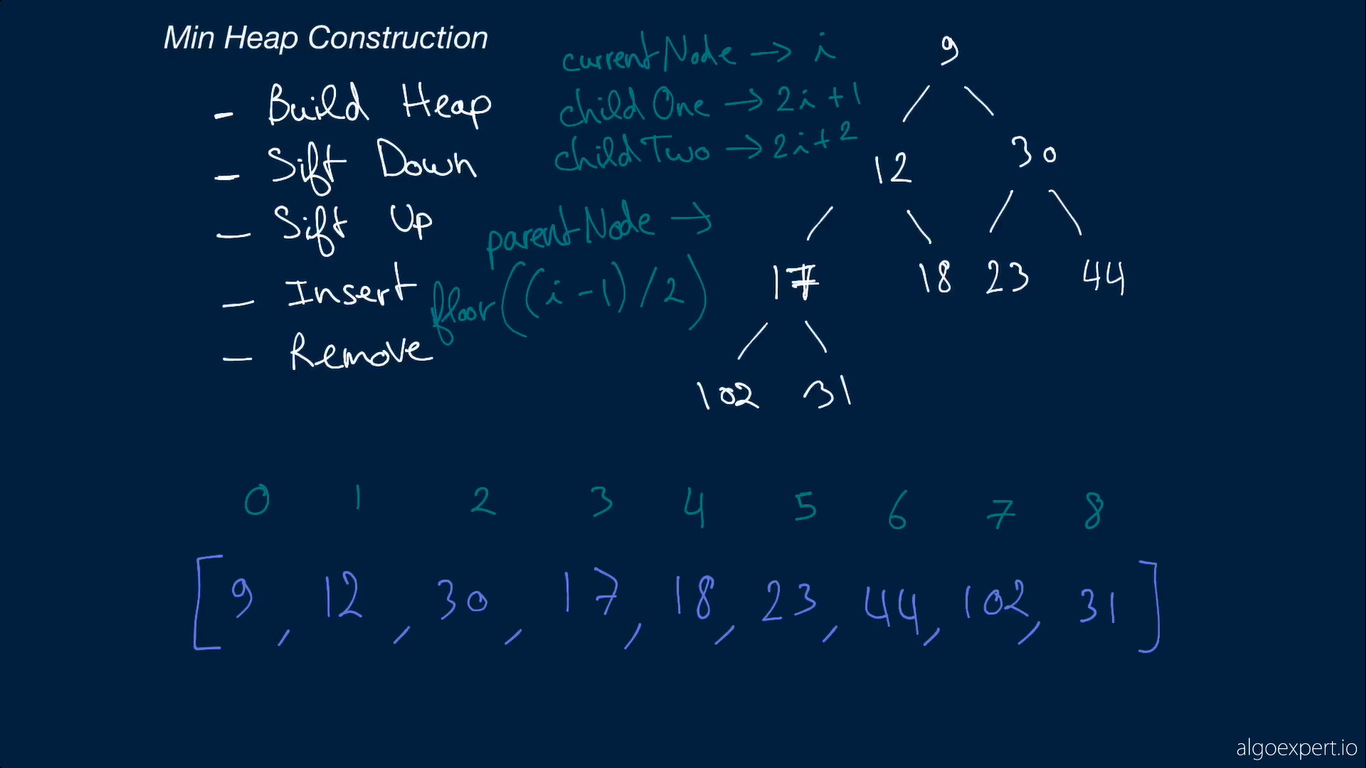 Min Heap Construction
- Build Heap
- Sift Down
- Sift Up
- Insert
- Remove
currentNode → i
childOne → 2i+1
childTwo → 2i+2
parentNode →
floor((i-1)/2)
9
12 30
17 18 23 44
102 31
0 1 2 3 4 5 6 7 8
[9, 12, 30, 17, 18, 23, 44, 102, 31]
algoexpert.io